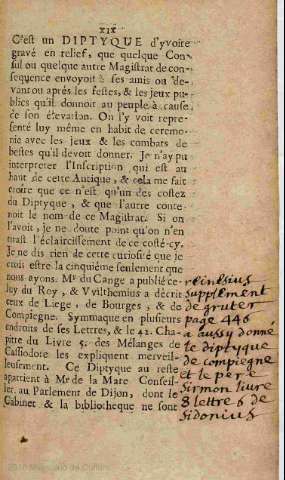 xix
C'est un DIPTYQUE d'yvoire
gravé en relief, que quelque Con-
sul ou quelque autre Magistrat de con-
sequence envoyoit à ses amis ou de-
vant ou aprés les festes, & les jeux pu-
blics qu'il donnoit au peuple à cause
de son élevation. On l'y voit repre-
senté luy même en habit de ceremo-
nie avec les jeux & les combats de
bestes qu'il devoit donner. Je n'ay pu
interpreter l'Inscription qui est au
haut de cette Antique, & cela me fait
croire que ce n'est qu'un des costez
du Diptyque, & que l'autre conte-
noit le nom de ce Magistrat. Si on
l'avoit, je ne doute point qu'on n'en
tirast l'éclaircissement de ce costé-cy.
Je ne dis rien de cette curiosité que je
crois estre la cinquiéme seulement que
nous ayons. Mr du Cange a publié ce-
luy du Roy, & Vvilthemius a décrit
ceux de Liege, de Bourges, & de
Compiegne. Symmaque en plusieurs
endroits de ses Lettres, & le 42. Cha-
pitre du Livre 5. des Mélanges de
Cassiodore les expliquent merveil-
leusement. Ce Diptyque au reste
appartient à Mr de la Mare Conseil-
ler au Parlement de Dijon, dont le
Cabinet & la bibliotheque ne sont
reinesius
supplement
de gruter
page 446
a aussy donné
le diptyque
de compiegne
et le pere
sirmon livre
8 lettre 6 de
sidonius